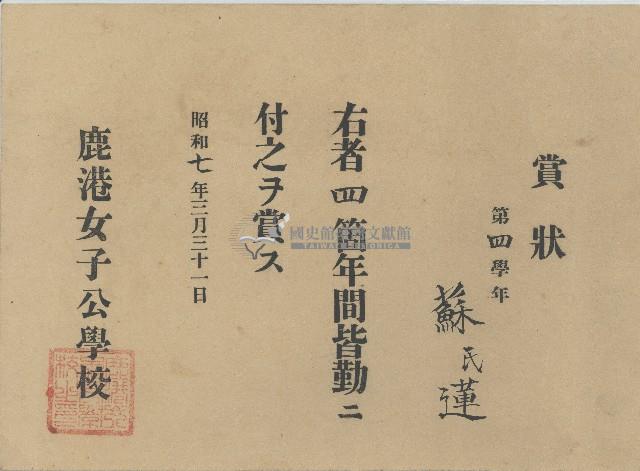 賞狀
第四學年
蘇民蓮
右者四箇年間皆勤ニ
付之ヲ賞ス
昭和七年三月三十一日
鹿港女子公學校
國史館臺灣文獻館
TAIWAN HISTORICA